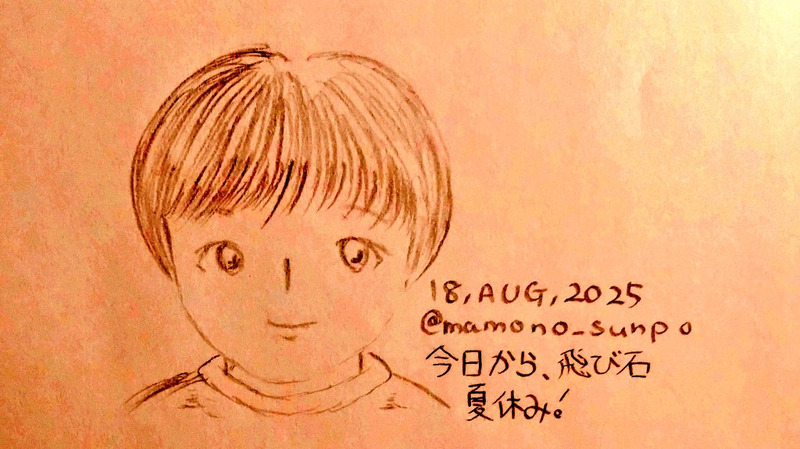 18, AUG, 2025
@mamono_sunpo
今日から、飛び石
夏休み!